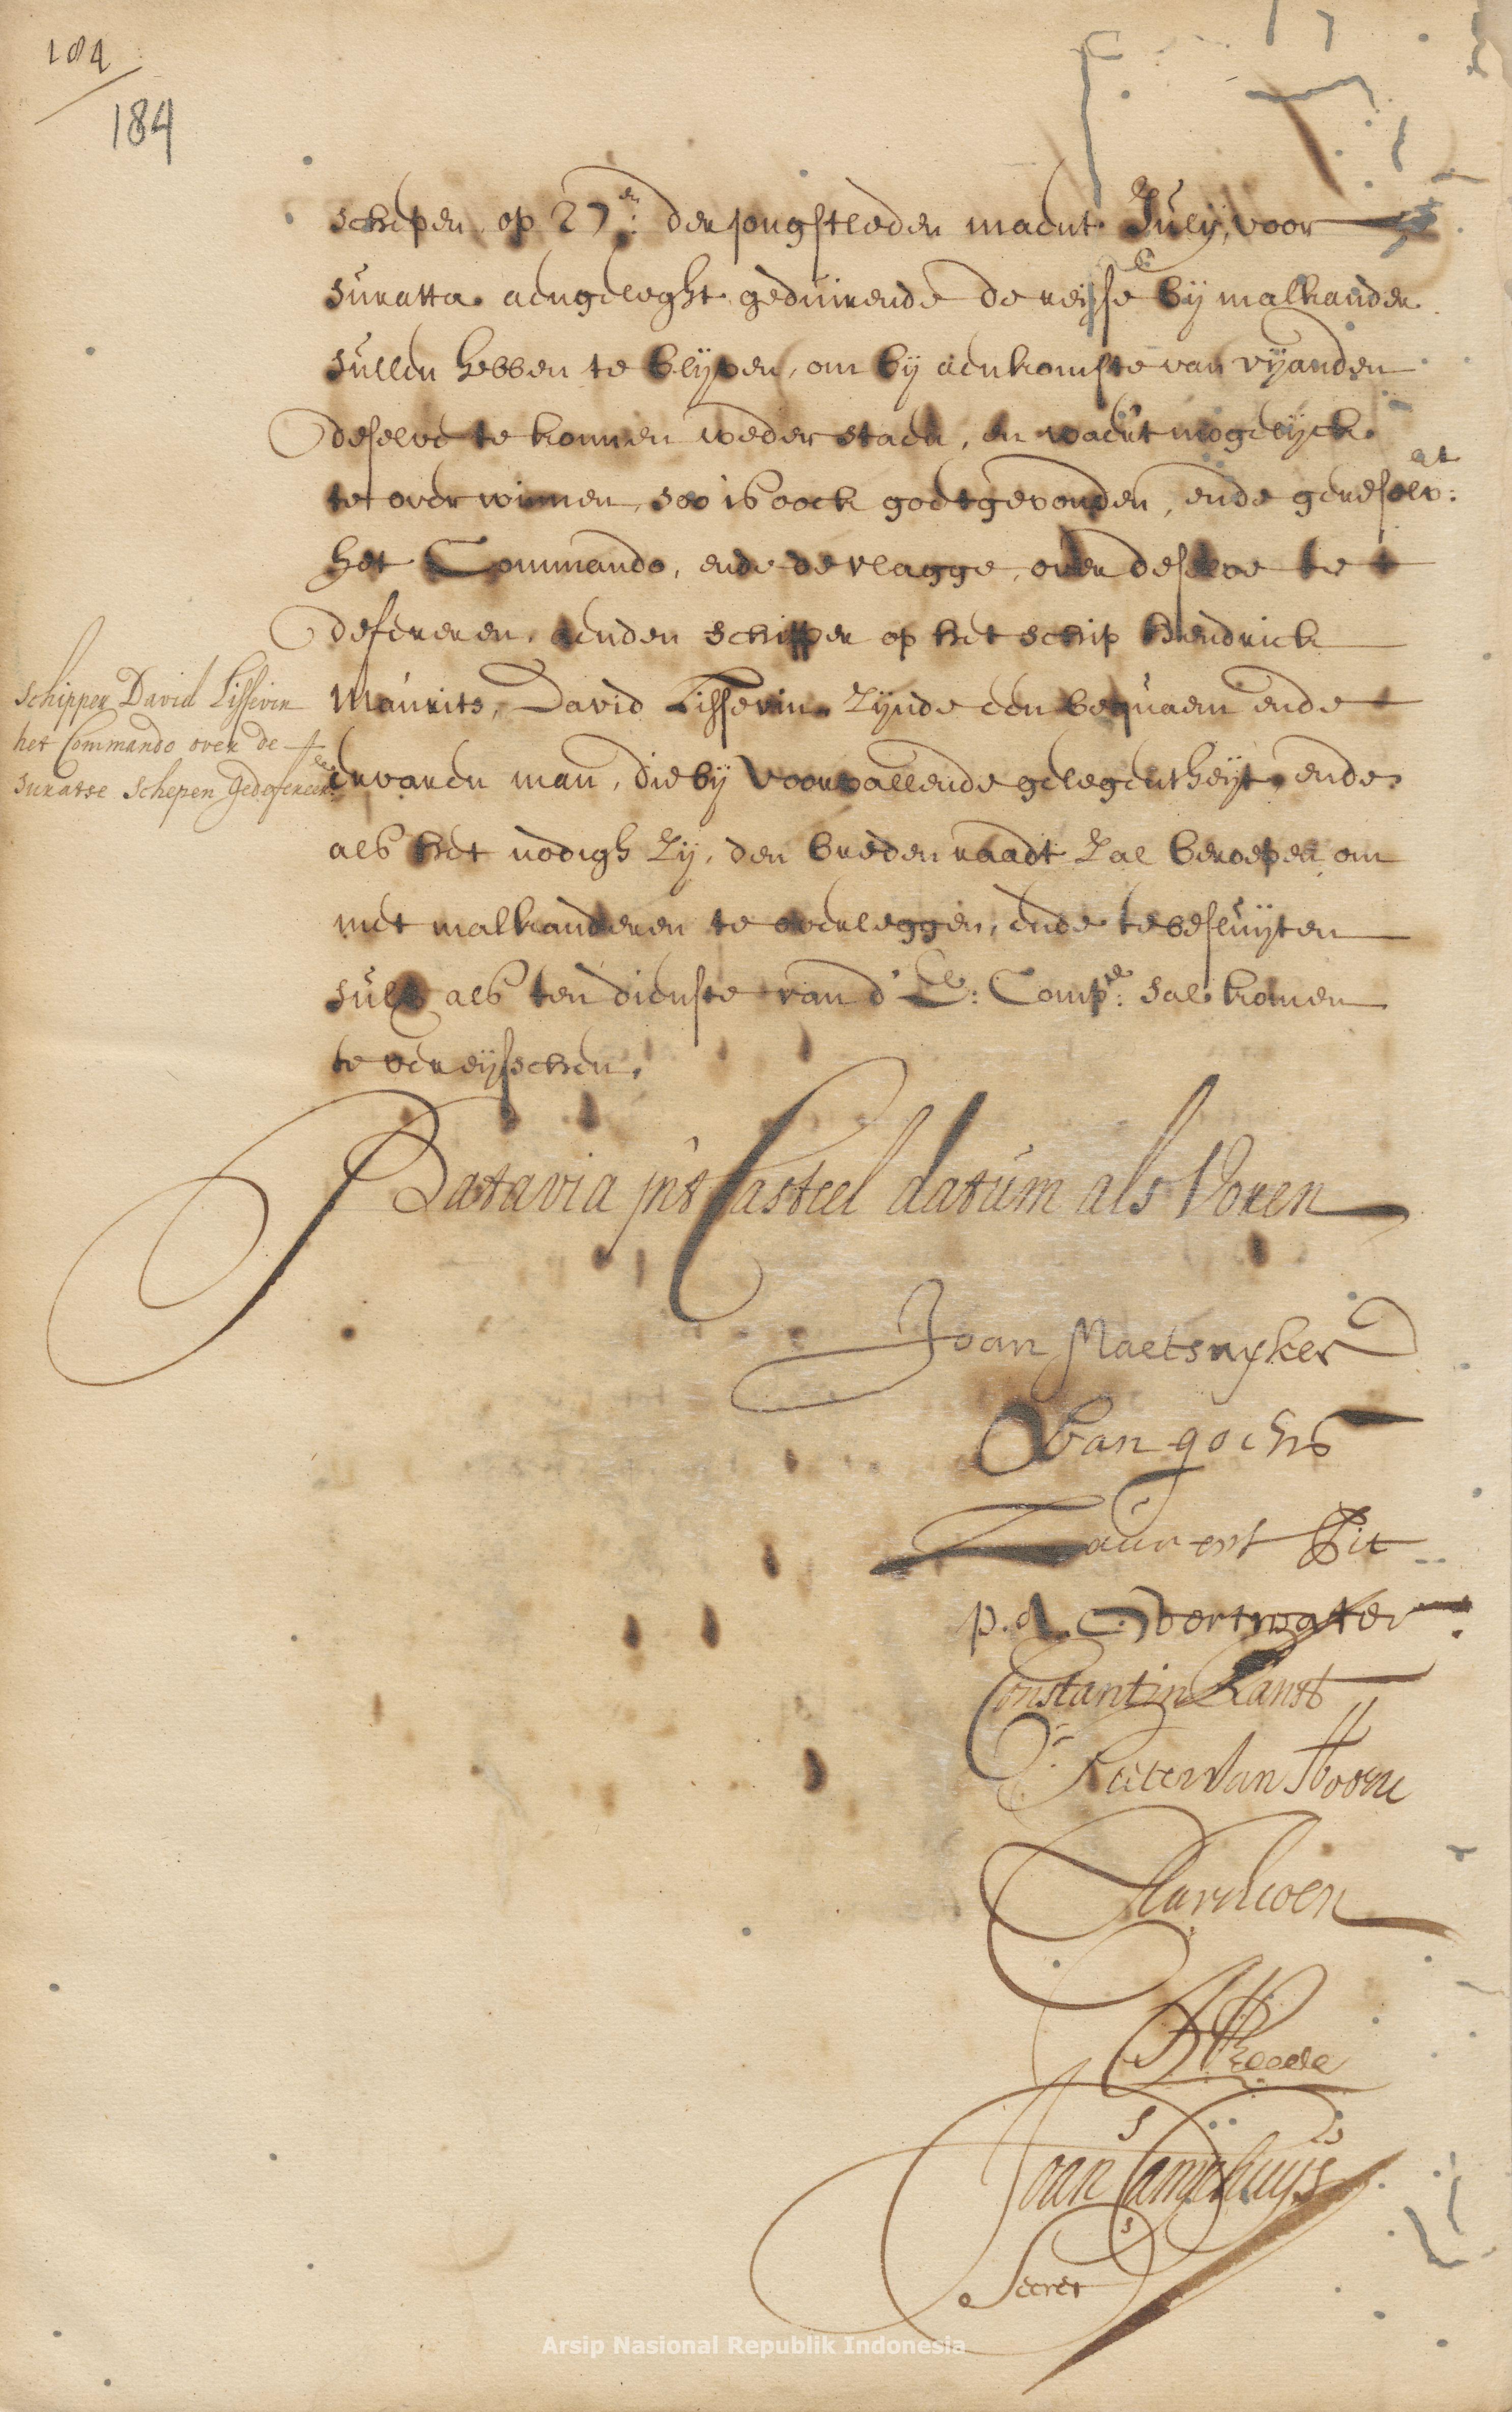 184
184
schepen, op 27en: der jongstleden maent July, voor
suratta aengeleght, geduirende de reijse bij malkander
sullen hebben te blijven, om bij aenkomste van vijanden
deselve te konnen wederstaen, en waer 't mogelijck
te overwinnen, soo is oock goetgevonden, ende geresolv:at
het Commando, ende de vlagge, over deselve te
defereren, aenden schipper op het schip Hendrick
Maurits, David Lissevin, zijnde een bequaem ende
ervaren man, die bij voorvallende gelegentheijt, ende
als het nodigh zij, den breden raadt zal beroepen, om
met malkanderen te overleggen, ende te besluijten
sulx als ten dienste van d' E: Comp:e sal komen
te vereijsschen.
Schipper David Lissevin
het Commando over de
Suratse schepen Gedefereert
Batavia in't Casteel datum als Voren
Joan Maetsuyker
Van gochs
Laurens Pit
p. A. Overtwater
Constantin Ranst
Pieter Van Hoorn
Joan Camphuijs
Secret
Arsip Nasional Republik Indonesia